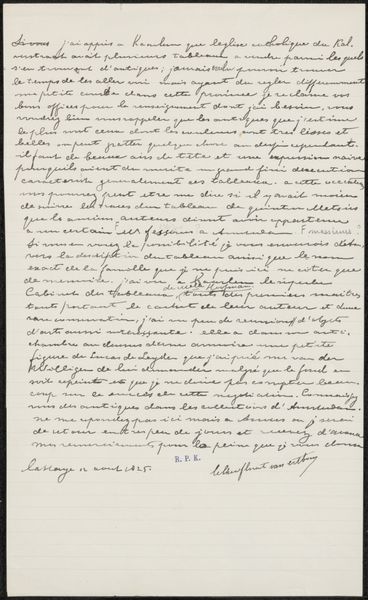 j'ai appris a Haarlem que l'eglise catholique du Kal
avait plusieurs tableaux a vendre parmi les quels
s'en trouvent d'antiques; jamais pouvoir trouver
le temps de les aller voir mais ayant du regler differemment
ma petite course dans cette province je reclame vos
bons offices pour le renseignement dont j'ai besoin, vous
voudrez bien vous rappeler que les antiques que j'estime
le plus sont ceux dont les couleurs sont tres lisses et
belles on peut jetter quelque chose au dessus cependant
il faut de beaux airs de tête et une expression naive
pourqu'ils aient du merite un grand fini d'execution
caracterise generalement ces tableaux. a cette occasion
vous pourrez peut etre me dire si il y avait moyen
de suivre les traces d'un tableau de Quintin Metsis
que les anciens auteurs disent avoir appartenu
a un certain a Amsterdam
Si vous en voyez la possibilité je vous enverrais
vers la description du tableau ainsi que le nom
exact de la famille que je puis ici ne citer que
de memoire. j'ai vu a Haarlem le superbe
Cabinet de tableaux tous des premiers maitres
tous portant le cachet de leur auteur et d'une
rare conservation, j'ai vu peu de reunions d'objets
d'arts aussi interessante: elle a dans son anti
chambre au dessus d'une armoire une petite
figure de Lucas de Leyden que j'ai prié van der
Willigen de lui demander malgré que le fond en
soit repeint et que je ne doive pas compter beau
coup sur le succès de cette negotiation. Connaissez
vous des antiques dans les collections d'Amsterdam.
ne me repondez pas ici mais a ou je serai
de retour entre peu de jours et recevez d'avance
mes remerciements pour la peine que je vous donne
R. P. K.
la Haye 12 aout 1825.
van Ertborn